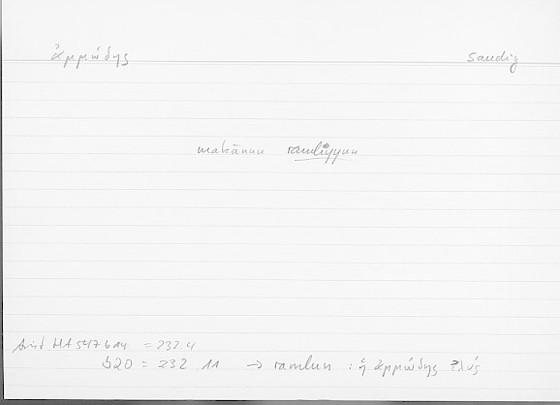 ἀμμώδης sandig
makānun ramliyyun
Arist HA 547 b 14 = 232.4
b20 = 232 11 → ramlun : ἡ ἀμμώδης ἰλύς